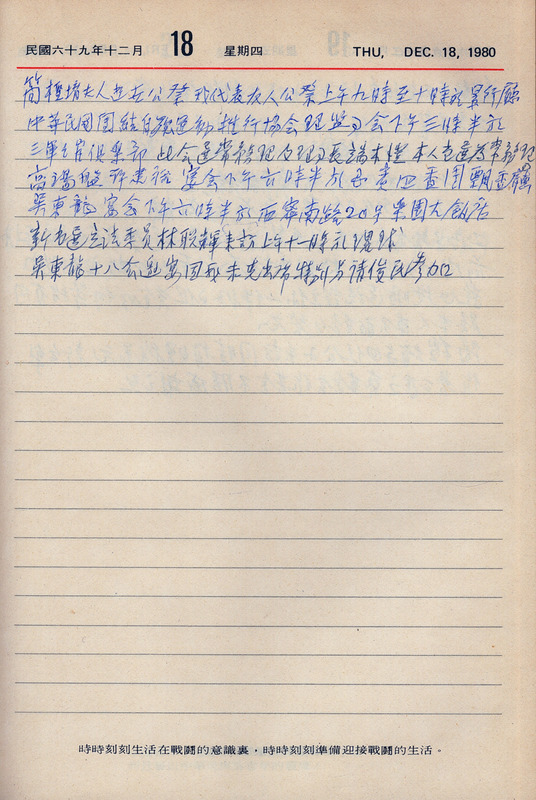 民國六十九年十二月 18 星期四 THU, DEC. 18, 1980
簡 夫人 公祭 我代表友人公祭上午九時至十時於
中華民國團結自強運動推行協會理監事會下午三時半於
三軍軍官俱樂部 此會選常務理 及理事長 本人當選為常務理
宴會下午六時半於 四香園
吳東龍宴會下午六時半於西寧南路20号 樂園大飯店
新當選立法委員林聯輝來訪上午十一時於環球
吳東龍十八 宴因我未克出席特別另請俊民參加
時時刻刻生活在戰鬪的意識裏，時時刻刻準備迎接戰鬪的生活。